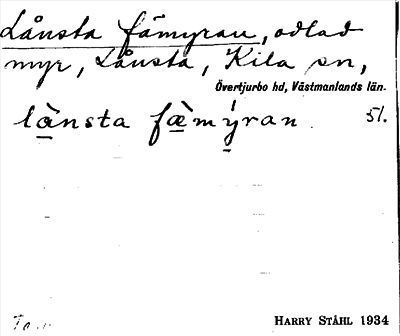 Lånsta fämyran, odlad
myr, Lånsta, Kila sn,
Övertjurbo hd, Västmanlands län.
lànsta fæ̀mýran 51.
HARRY STÅHL 1934